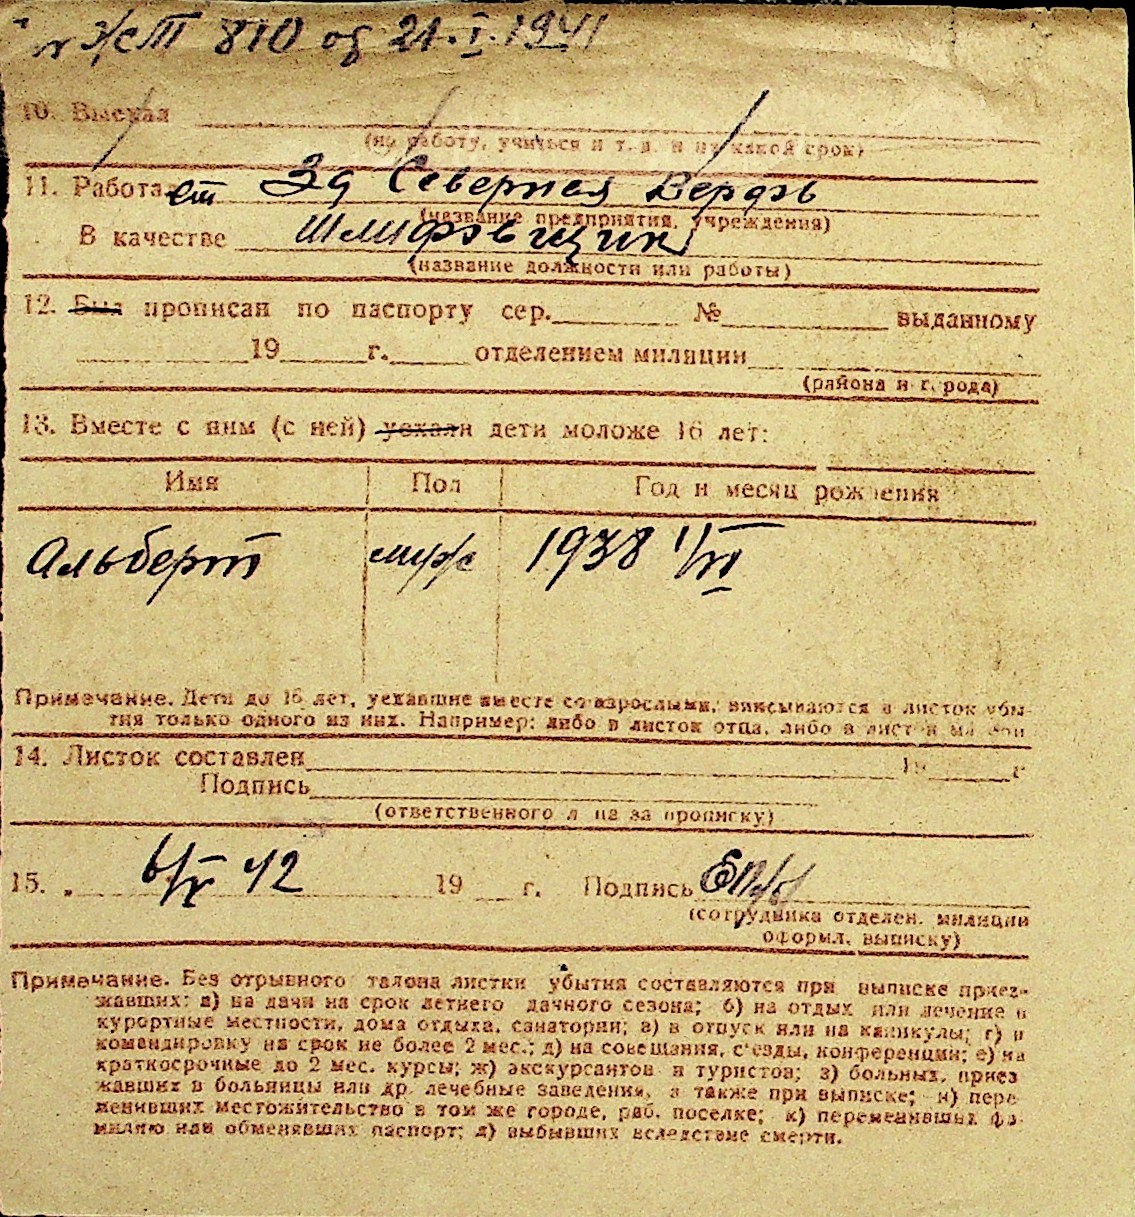 810 от 21.I.1941
10. Выехал
(на работу, учиться и т. д. и на какой срок)
11. Работает Зд Северная Верфь
(название предприятия, учреждения)
В качестве Шлифовщик
(название должности или работы)
12. Был прописан по паспорту сер. № выданному
19 г. отделением милиции
(района и города)
13. Вместе с ним (с ней) уехали дети моложе 16 лет:
Имя Пол Год и месяц рождения
Альберт муж 1938 1/VI
Примечание. Дети до 16 лет, уехавшие вместе со взрослыми, вписываются в листок убы-
тия только одного из них. Например: либо в листок отца, либо в листок матери
14. Листок составлен 19 г
Подпись
(ответственного лица за прописку)
15. „ 6/V 42 19 г. Подпись
(сотрудника отделен. милиции
оформл. выписку)
Примечание. Без отрывного талона листки убытия составляются при выписке приез-
жавших: а) на дачи на срок летнего дачного сезона; б) на отдых или лечение в
курортные местности, дома отдыха, санатории; в) в отпуск или на каникулы; г) в
командировку на срок не более 2 мес.; д) на совещания, съезды, конференции; е) на
краткосрочные до 2 мес. курсы; ж) экскурсантов и туристов; з) больных, приез
жавших в больницы или др. лечебные заведения, а также при выписке; и) пере
менивших местожительство в том же городе, раб. поселке; к) переменивших фа-
милию или обменявших паспорт; л) выбывших вследствие смерти.